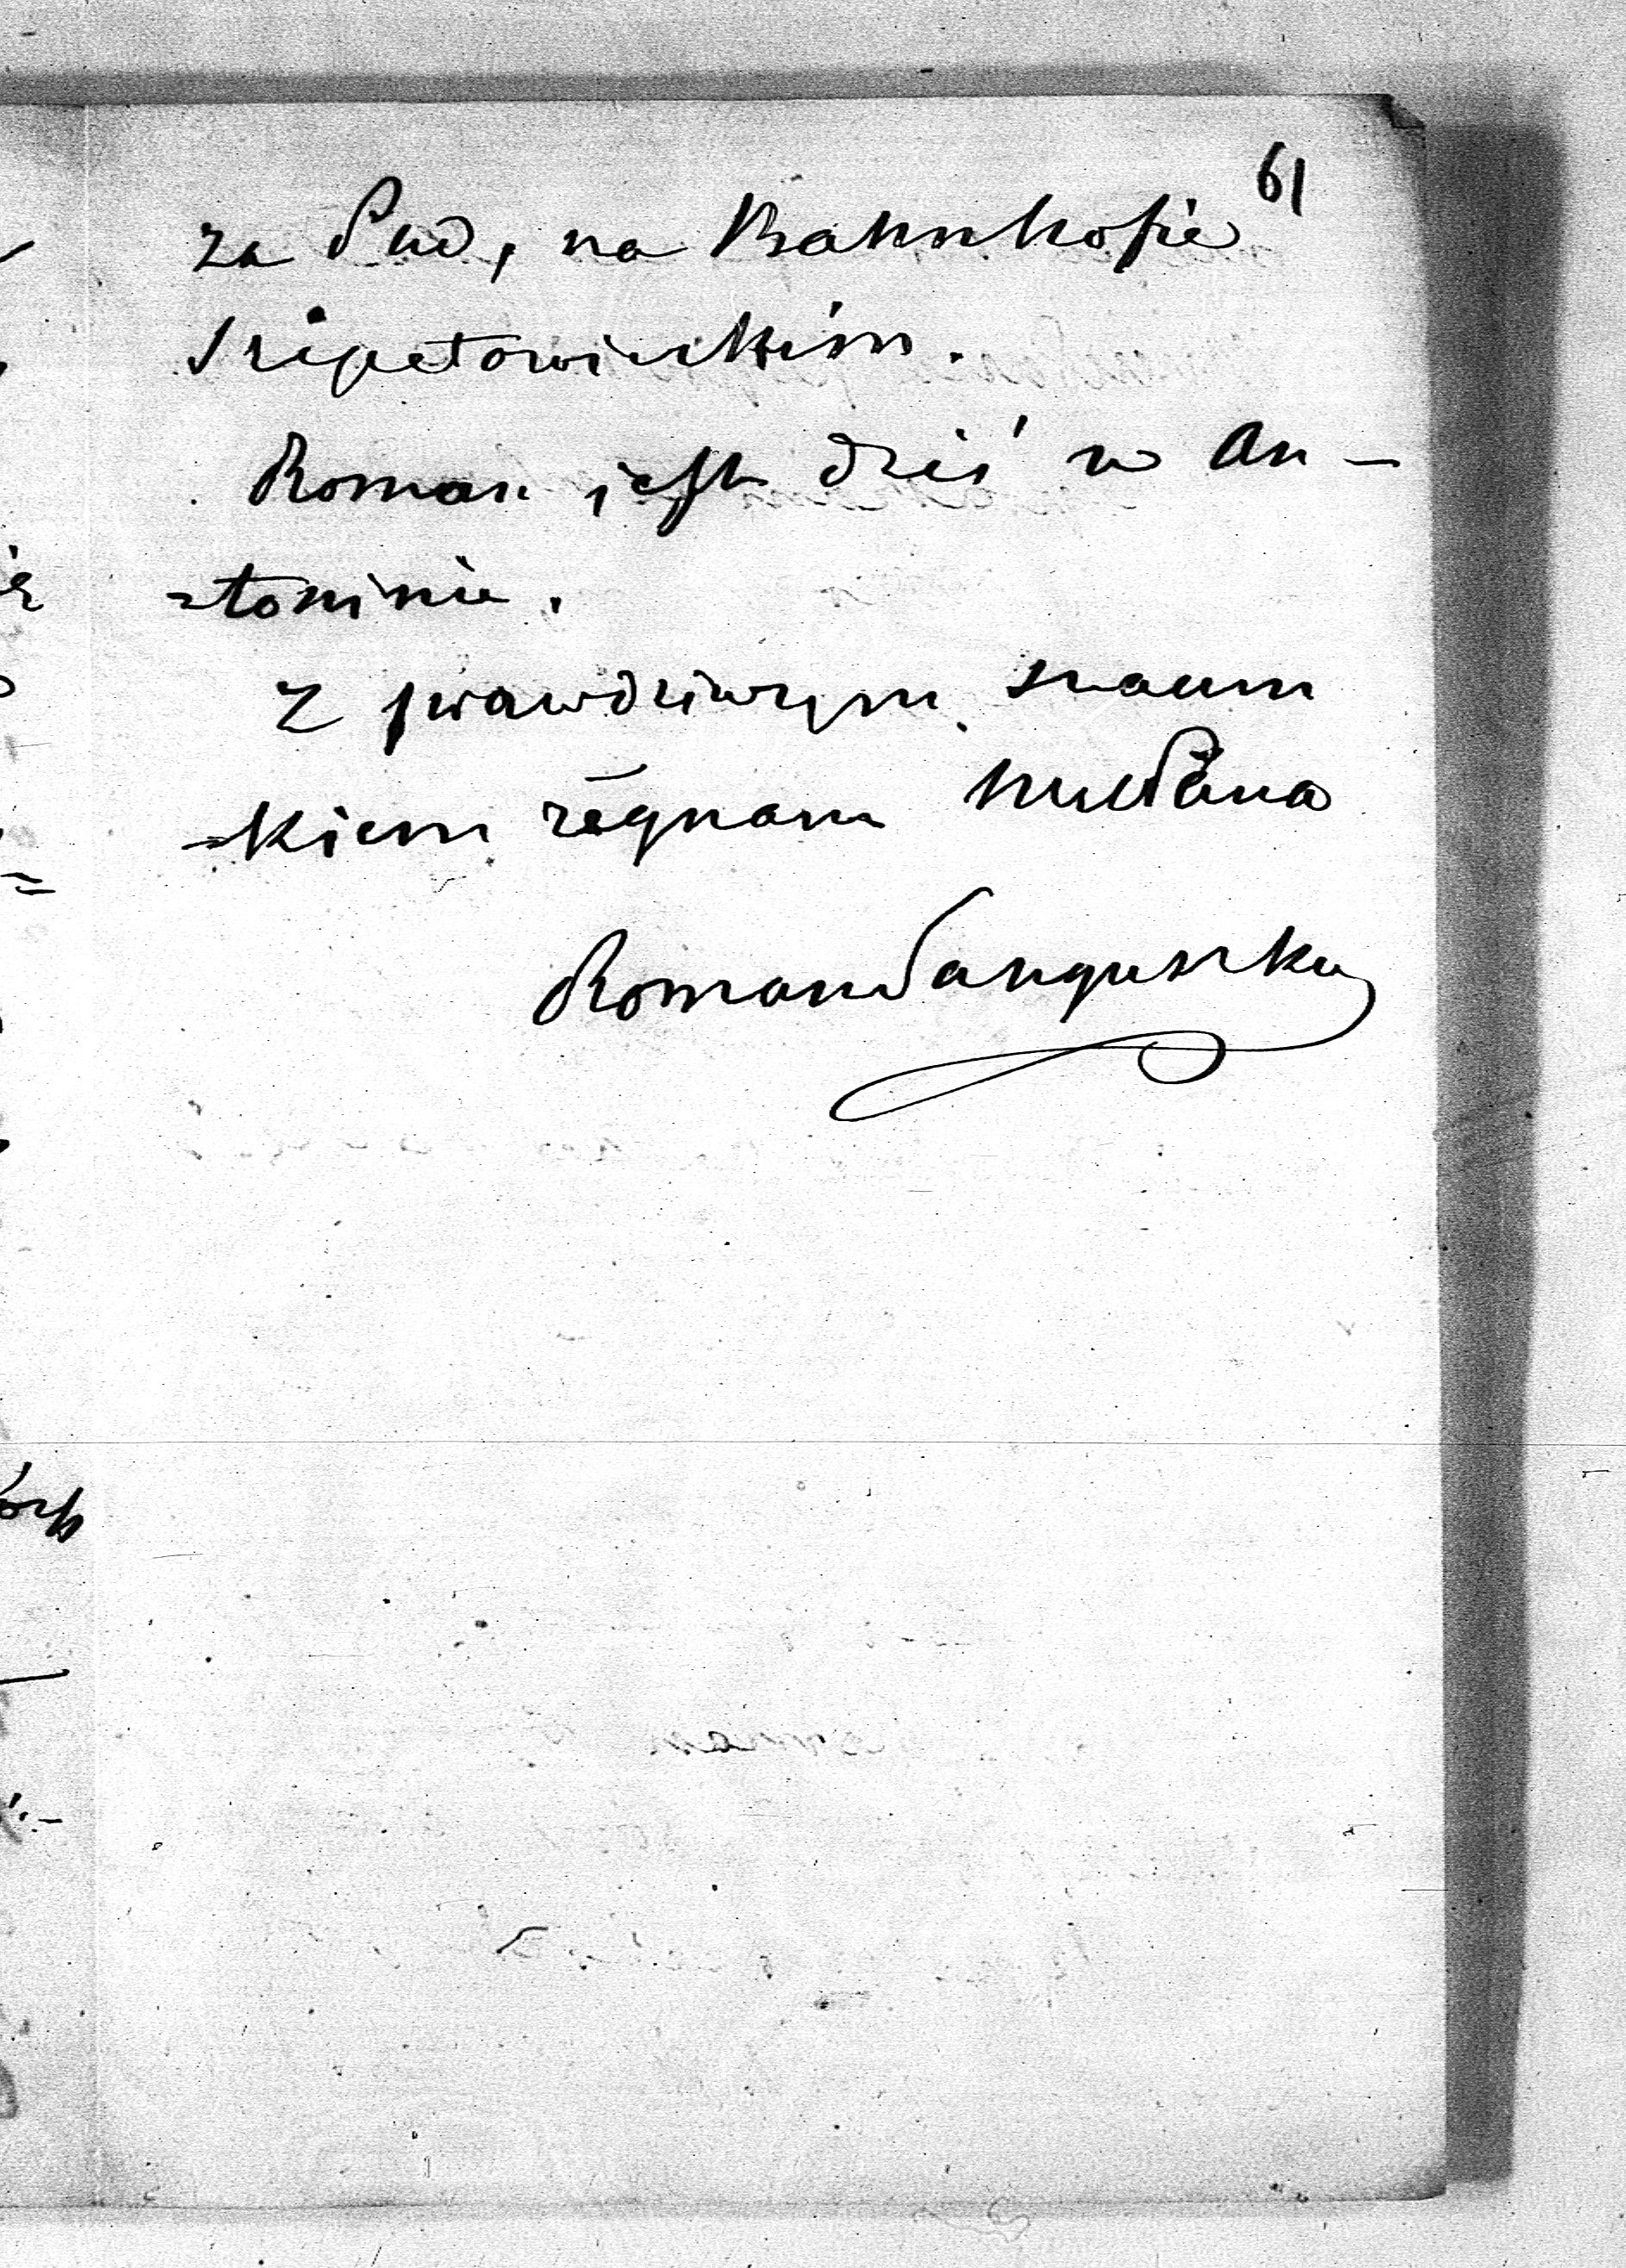 61
za Pud, na Bahnhofie
Szepetowieckim.
Roman jest dziś w An-
=toninie.
Z prawdziwym szacun
=kiem żegnam Pana
Roman Sanguszko